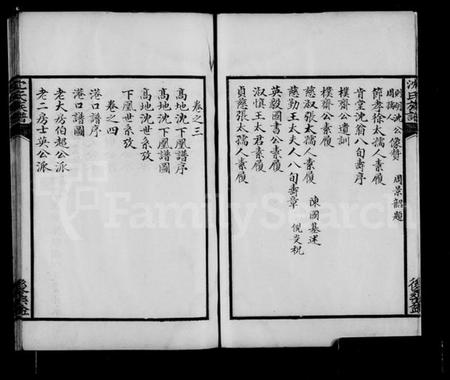 沈氏族譜
周孺人像贊 周景韶題
節孝徐太孺人素履
肯堂沈翁八旬壽序
樸齋公遺訓
樸齋公素履
慈淑王太孺人素履 陳國基述
慈勤王太夫人八旬壽章 倪文祝
英毅國書公素履
淑慎王太君素履
貞慈張太孺人素履
卷之三
高地沈下凰譜序
高地沈下凰譜圖
高地沈世系攷
下凰世系攷
卷之四
港口譜序
港口譜圖
老大房伯起公派
老二房士英公派
FamilySearch